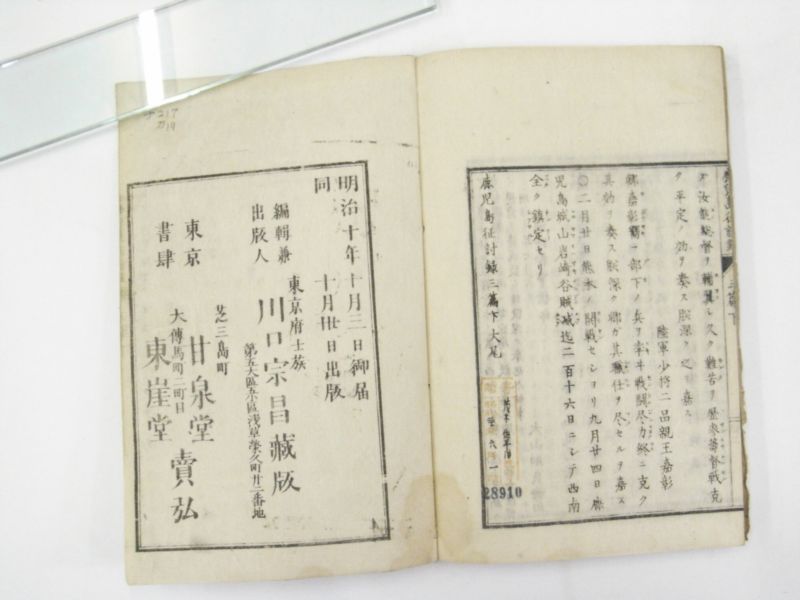 汝能ク総督ヲ輔翼シ久ク艱苦ヲ歴参籌督戦克
ク平定ノ効ヲ奏ス朕深ク之ヲ嘉ス
陸軍少将二品親王嘉彰
卿嘉彰 一部下ノ兵ヲ率牛戦闘尽力終ニ克ク
其効ヲ奏ス朕深ク卿ガ其職任ヲ尽セルヲ嘉ス
〇二月廿日熊本ノ開戦セシヨリ九月廿四日鹿
児島城山岩崎谷賊滅迄二百十六日ニシテ西南
全ク鎮定セリ
鹿児島征討録三篇下大尾
28910
明治十年十月三日御届
同 十月廿日出版
編輯兼出版人
東京府士族
川口宗昌藏版
第五大區六小區浅草榮久町廿二番地
東京書肆
芝三島町
甘泉堂
大傳馬町二町目
東崖堂
賣弘
217